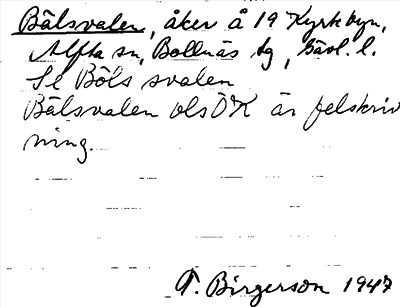 Bälsvalen, åker å 19 Kyrkbyn,
Alfta sn, Bollnäs tg, Gävl. l.
Se Böls svalen
Bälsvalen ols ÖK är felskriv
ning.
T. Birgerson 1947